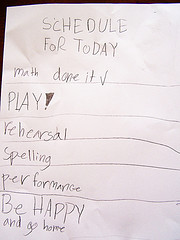 SCHEDULE
FOR TODAY
math done it √
PLAY!
rehearsal
spelling
performance
Be HAPPY
and go home